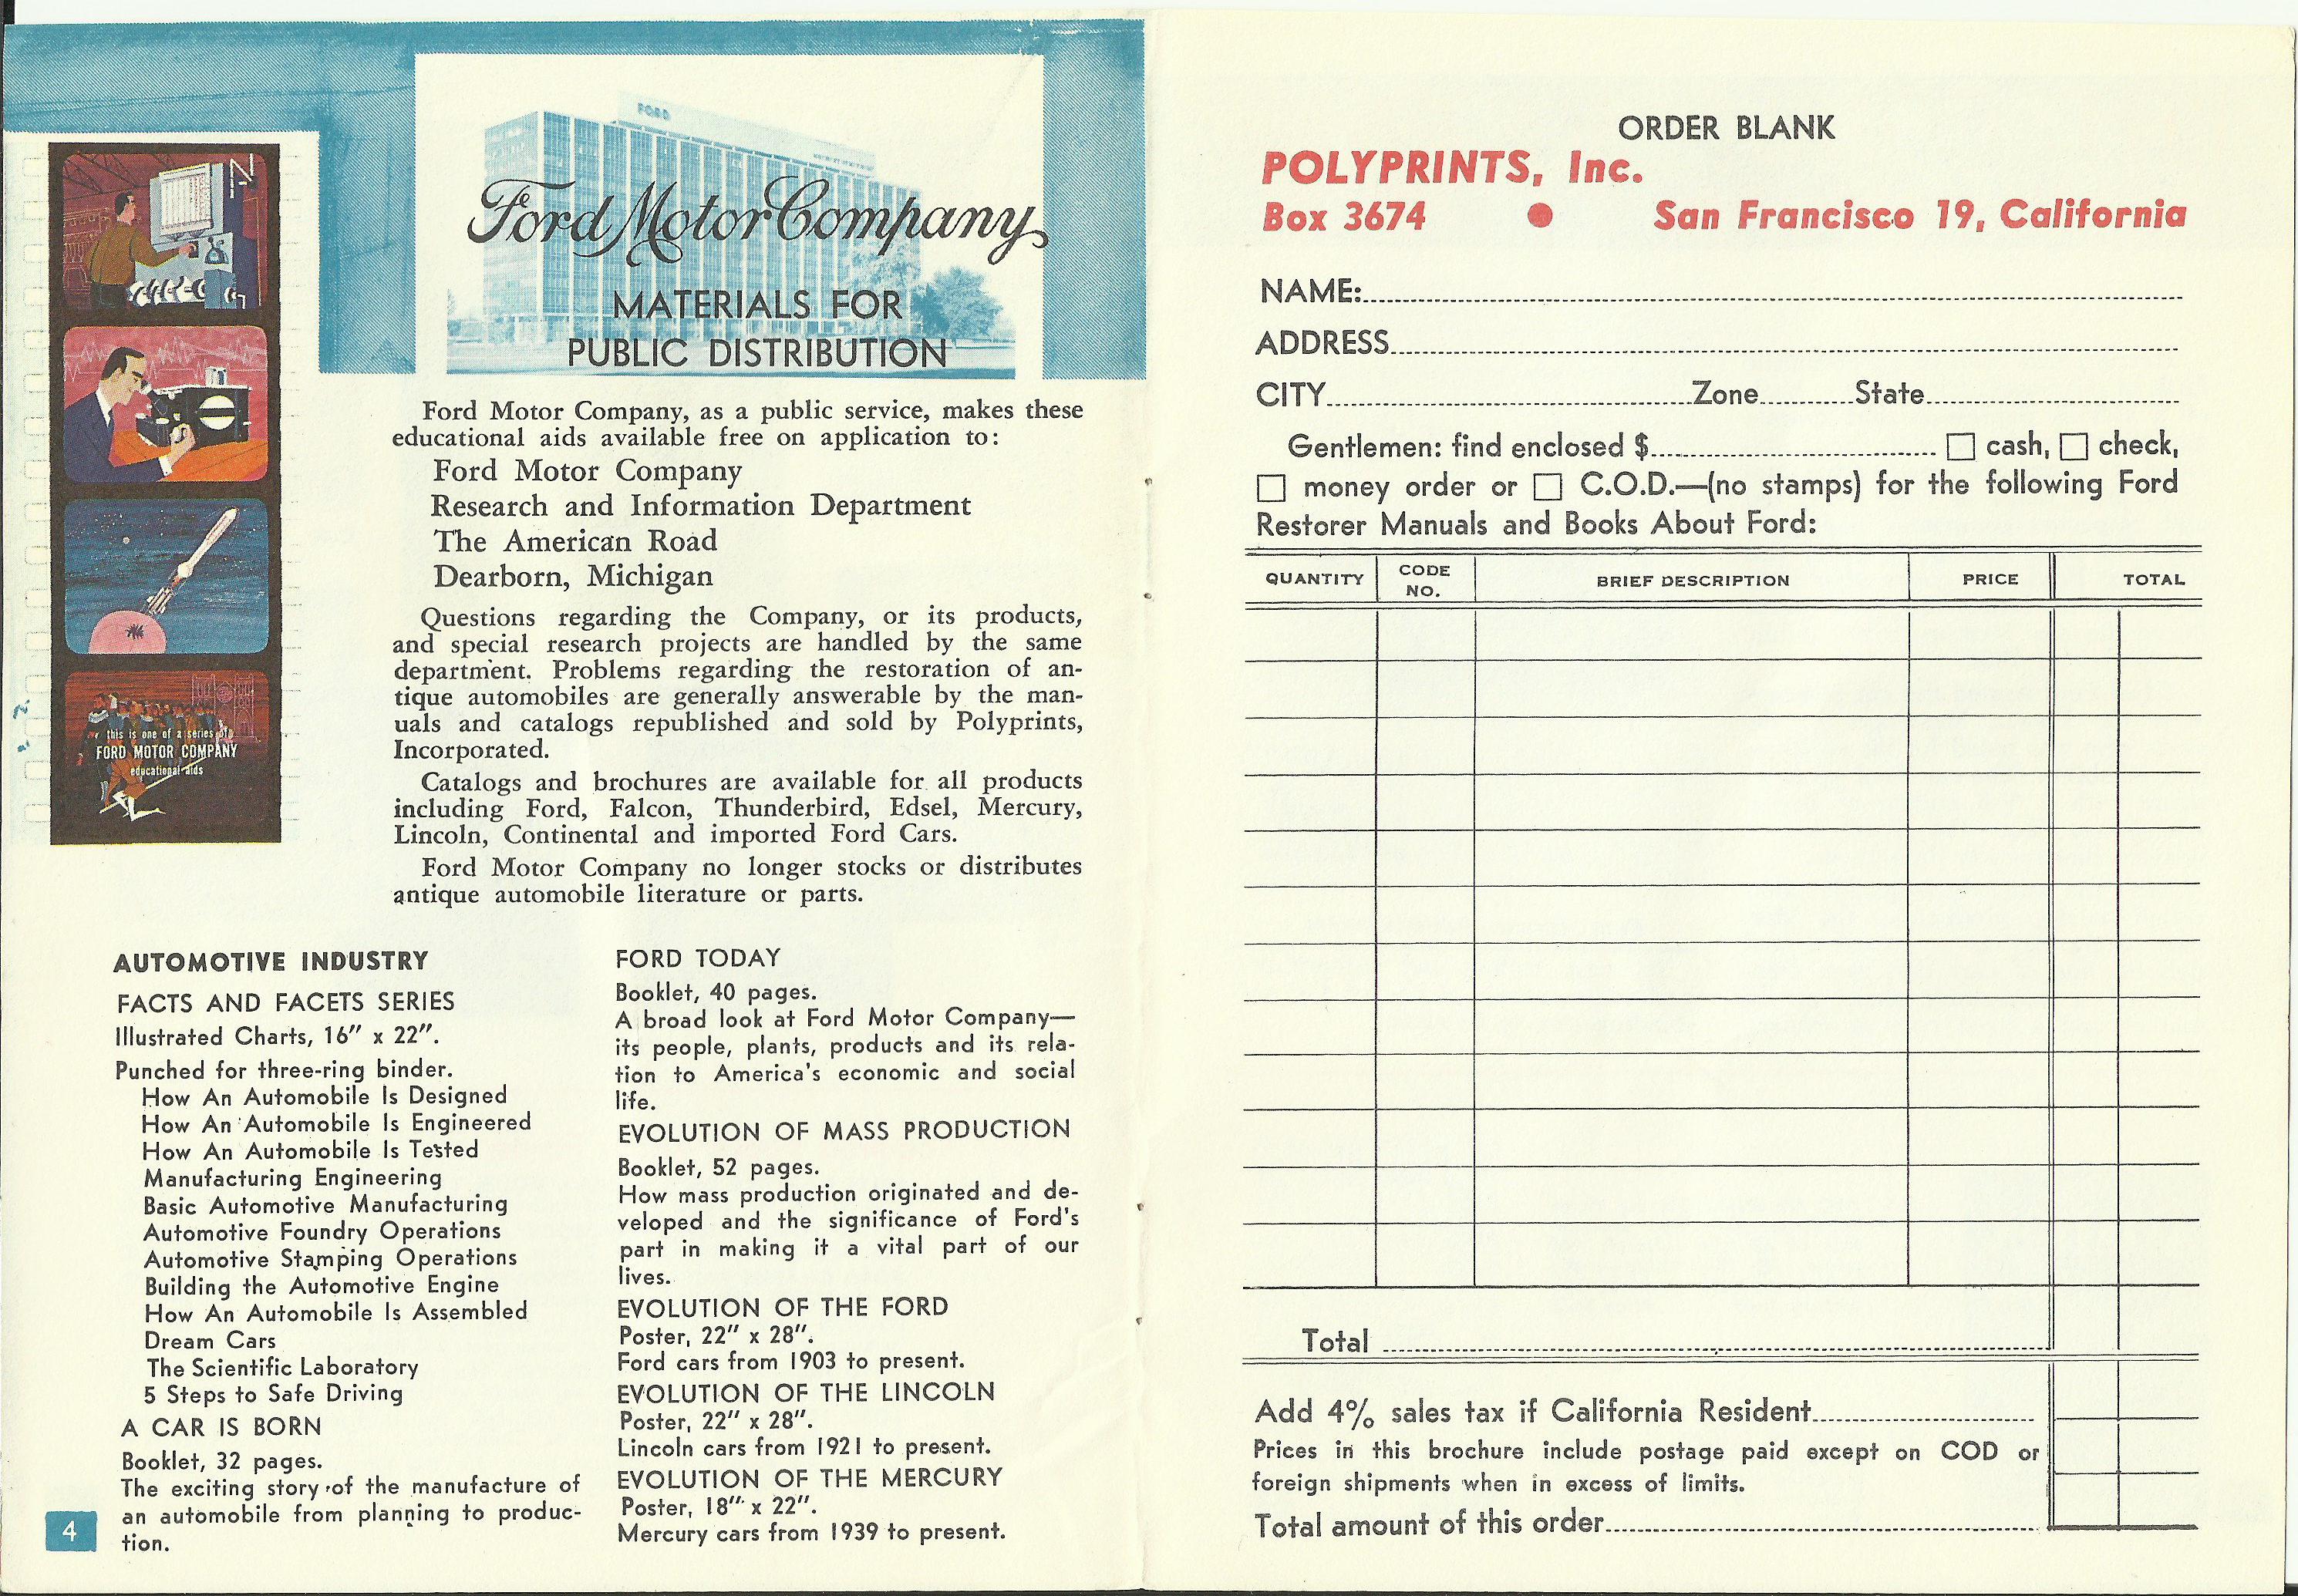 FORD
Ford Motor Company
MATERIALS FOR
PUBLIC DISTRIBUTION
this is one of a series of
FORD MOTOR COMPANY
educational aids
Ford Motor Company, as a public service, makes these
educational aids available free on application to:
Ford Motor Company
Research and Information Department
The American Road
Dearborn, Michigan
Questions regarding the Company, or its products,
and special research projects are handled by the same
department. Problems regarding the restoration of an-
tique automobiles are generally answerable by the man-
uals and catalogs republished and sold by Polyprints,
Incorporated.
Catalogs and brochures are available for all products
including Ford, Falcon, Thunderbird, Edsel, Mercury,
Lincoln, Continental and imported Ford Cars.
Ford Motor Company no longer stocks or distributes
antique automobile literature or parts.
AUTOMOTIVE INDUSTRY
FACTS AND FACETS SERIES
Illustrated Charts, 16" x 22".
Punched for three-ring binder.
How An Automobile Is Designed
How An Automobile Is Engineered
How An Automobile Is Tested
Manufacturing Engineering
Basic Automotive Manufacturing
Automotive Foundry Operations
Automotive Stamping Operations
Building the Automotive Engine
How An Automobile Is Assembled
Dream Cars
The Scientific Laboratory
5 Steps to Safe Driving
A CAR IS BORN
Booklet, 32 pages.
The exciting story of the manufacture of
an automobile from planning to produc-
tion.
4
FORD TODAY
Booklet, 40 pages.
A broad look at Ford Motor Company—
its people, plants, products and its rela-
tion to America's economic and social
life.
EVOLUTION OF MASS PRODUCTION
Booklet, 52 pages.
How mass production originated and de-
veloped and the significance of Ford's
part in making it a vital part of our
lives.
EVOLUTION OF THE FORD
Poster, 22" x 28".
Ford cars from 1903 to present.
EVOLUTION OF THE LINCOLN
Poster, 22" x 28".
Lincoln cars from 1921 to present.
EVOLUTION OF THE MERCURY
Poster, 18" x 22".
Mercury cars from 1939 to present.
ORDER BLANK
POLYPRINTS, Inc.
Box 3674 ● San Francisco 19, California
NAME:
ADDRESS
CITY Zone State
Gentlemen: find enclosed $ ☐ cash, ☐ check,
☐ money order or ☐ C.O.D.—(no stamps) for the following Ford
Restorer Manuals and Books About Ford:
QUANTITY CODE NO. BRIEF DESCRIPTION PRICE TOTAL
Total
Add 4% sales tax if California Resident
Prices in this brochure include postage paid except on COD or
foreign shipments when in excess of limits.
Total amount of this order